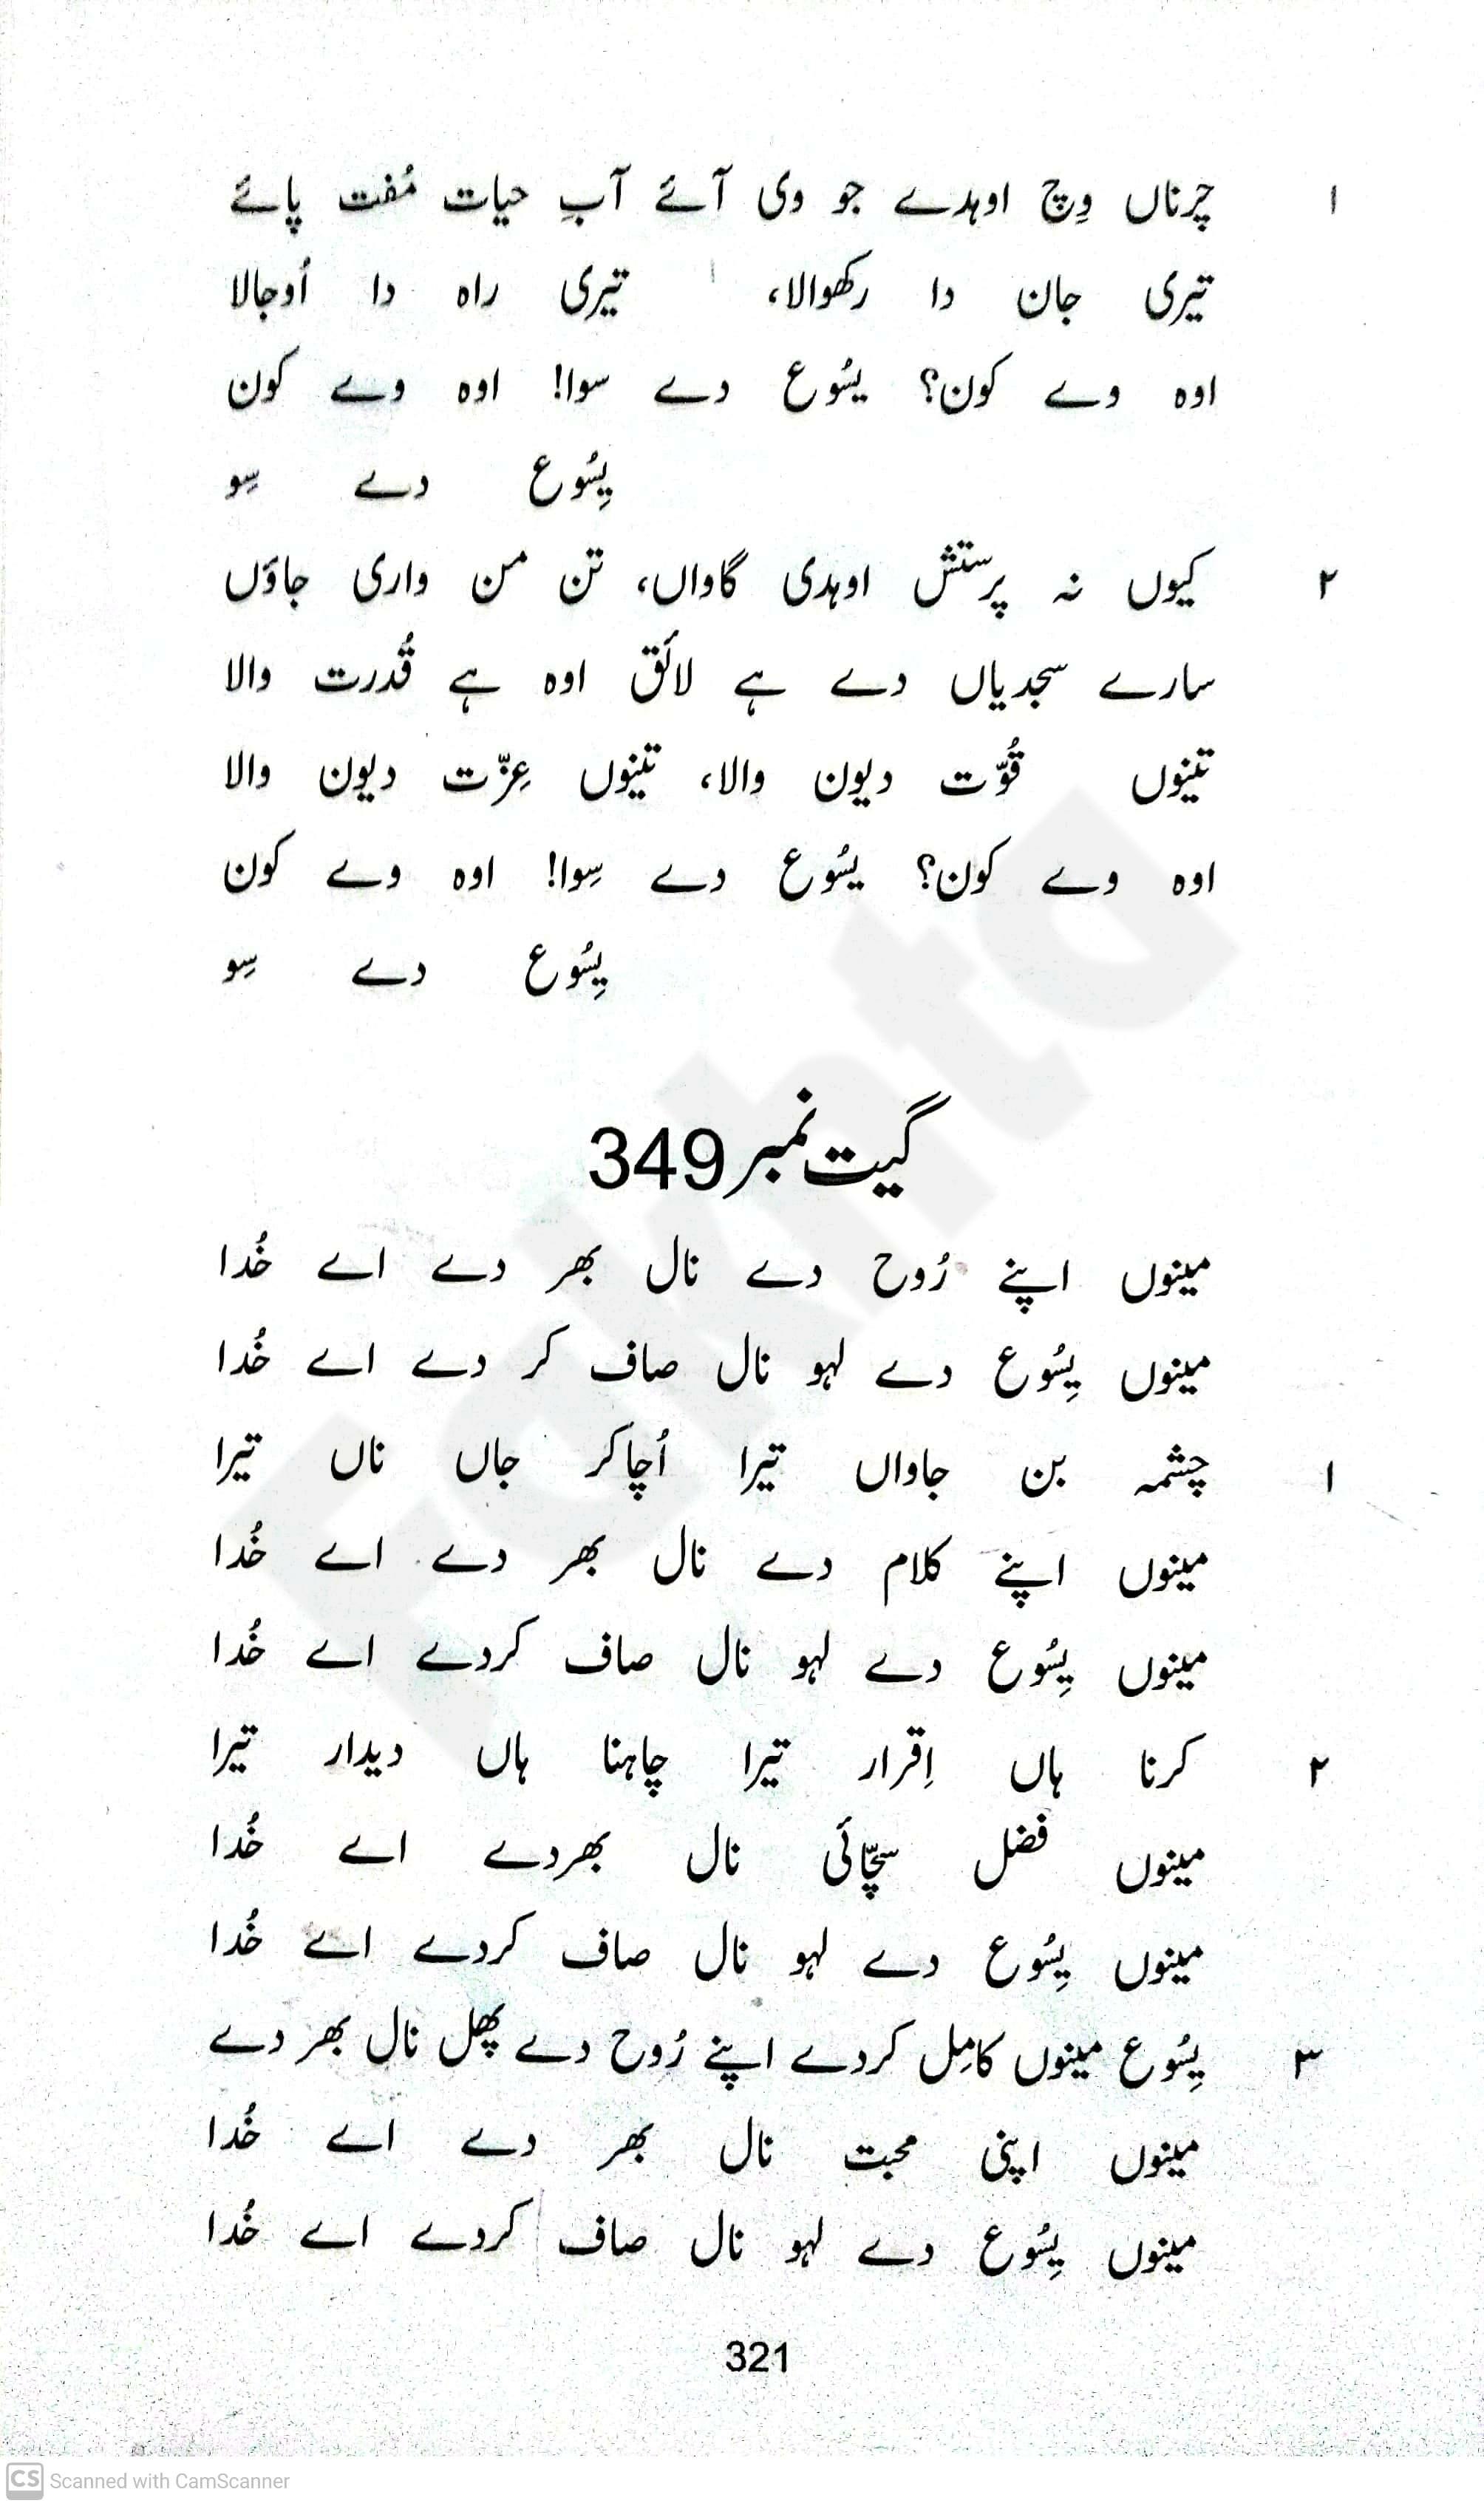 ۱ چرناں وِچ اوہدے جو وی آئے آبِ حیات مُفت پائے
تیری جان دا رکھوالا، تیری راہ دا اُوجالا
اوہ وے کون؟ یسُوع دے سوا! اوہ وے کون
یِسُوع دے سِو
۲ کیوں نہ پرستش اوہدی گاواں، تن من واری جاوَں
سارے سجدیاں دے ہے لائق اوہ ہے قُدرت والا
تینوں قُوّت دیون والا، تینوں عِزّت دیون والا
اوہ وے کون؟ یسُوع دے سِوا! اوہ وے کون
یِسُوع دے سِو
گیت نمبر 349
مینوں اپنے رُوح دے نال بھر دے اے خُدا
مینوں یِسُوع دے لہو نال صاف کر دے اے خُدا
۱ چشمہ بن جاواں تیرا اُچا کر جاں ناں تیرا
مینوں اپنے کلام دے نال بھر دے اے خُدا
مینوں یِسُوع دے لہو نال صاف کردے اے خُدا
۲ کرنا ہاں اِقرار تیرا چاہنا ہاں دیدار تیرا
مینوں فضل سچّائی نال بھردے اے خُدا
مینوں یِسُوع دے لہو نال صاف کردے اے خُدا
۳ یِسُوع مینوں کامِل کردے اپنے رُوح دے پھل نال بھر دے
مینوں اپنی محبت نال بھر دے اے خُدا
مینوں یِسُوع دے لہو نال صاف کردے اے خُدا
321
Fakhta
CS Scanned with CamScanner